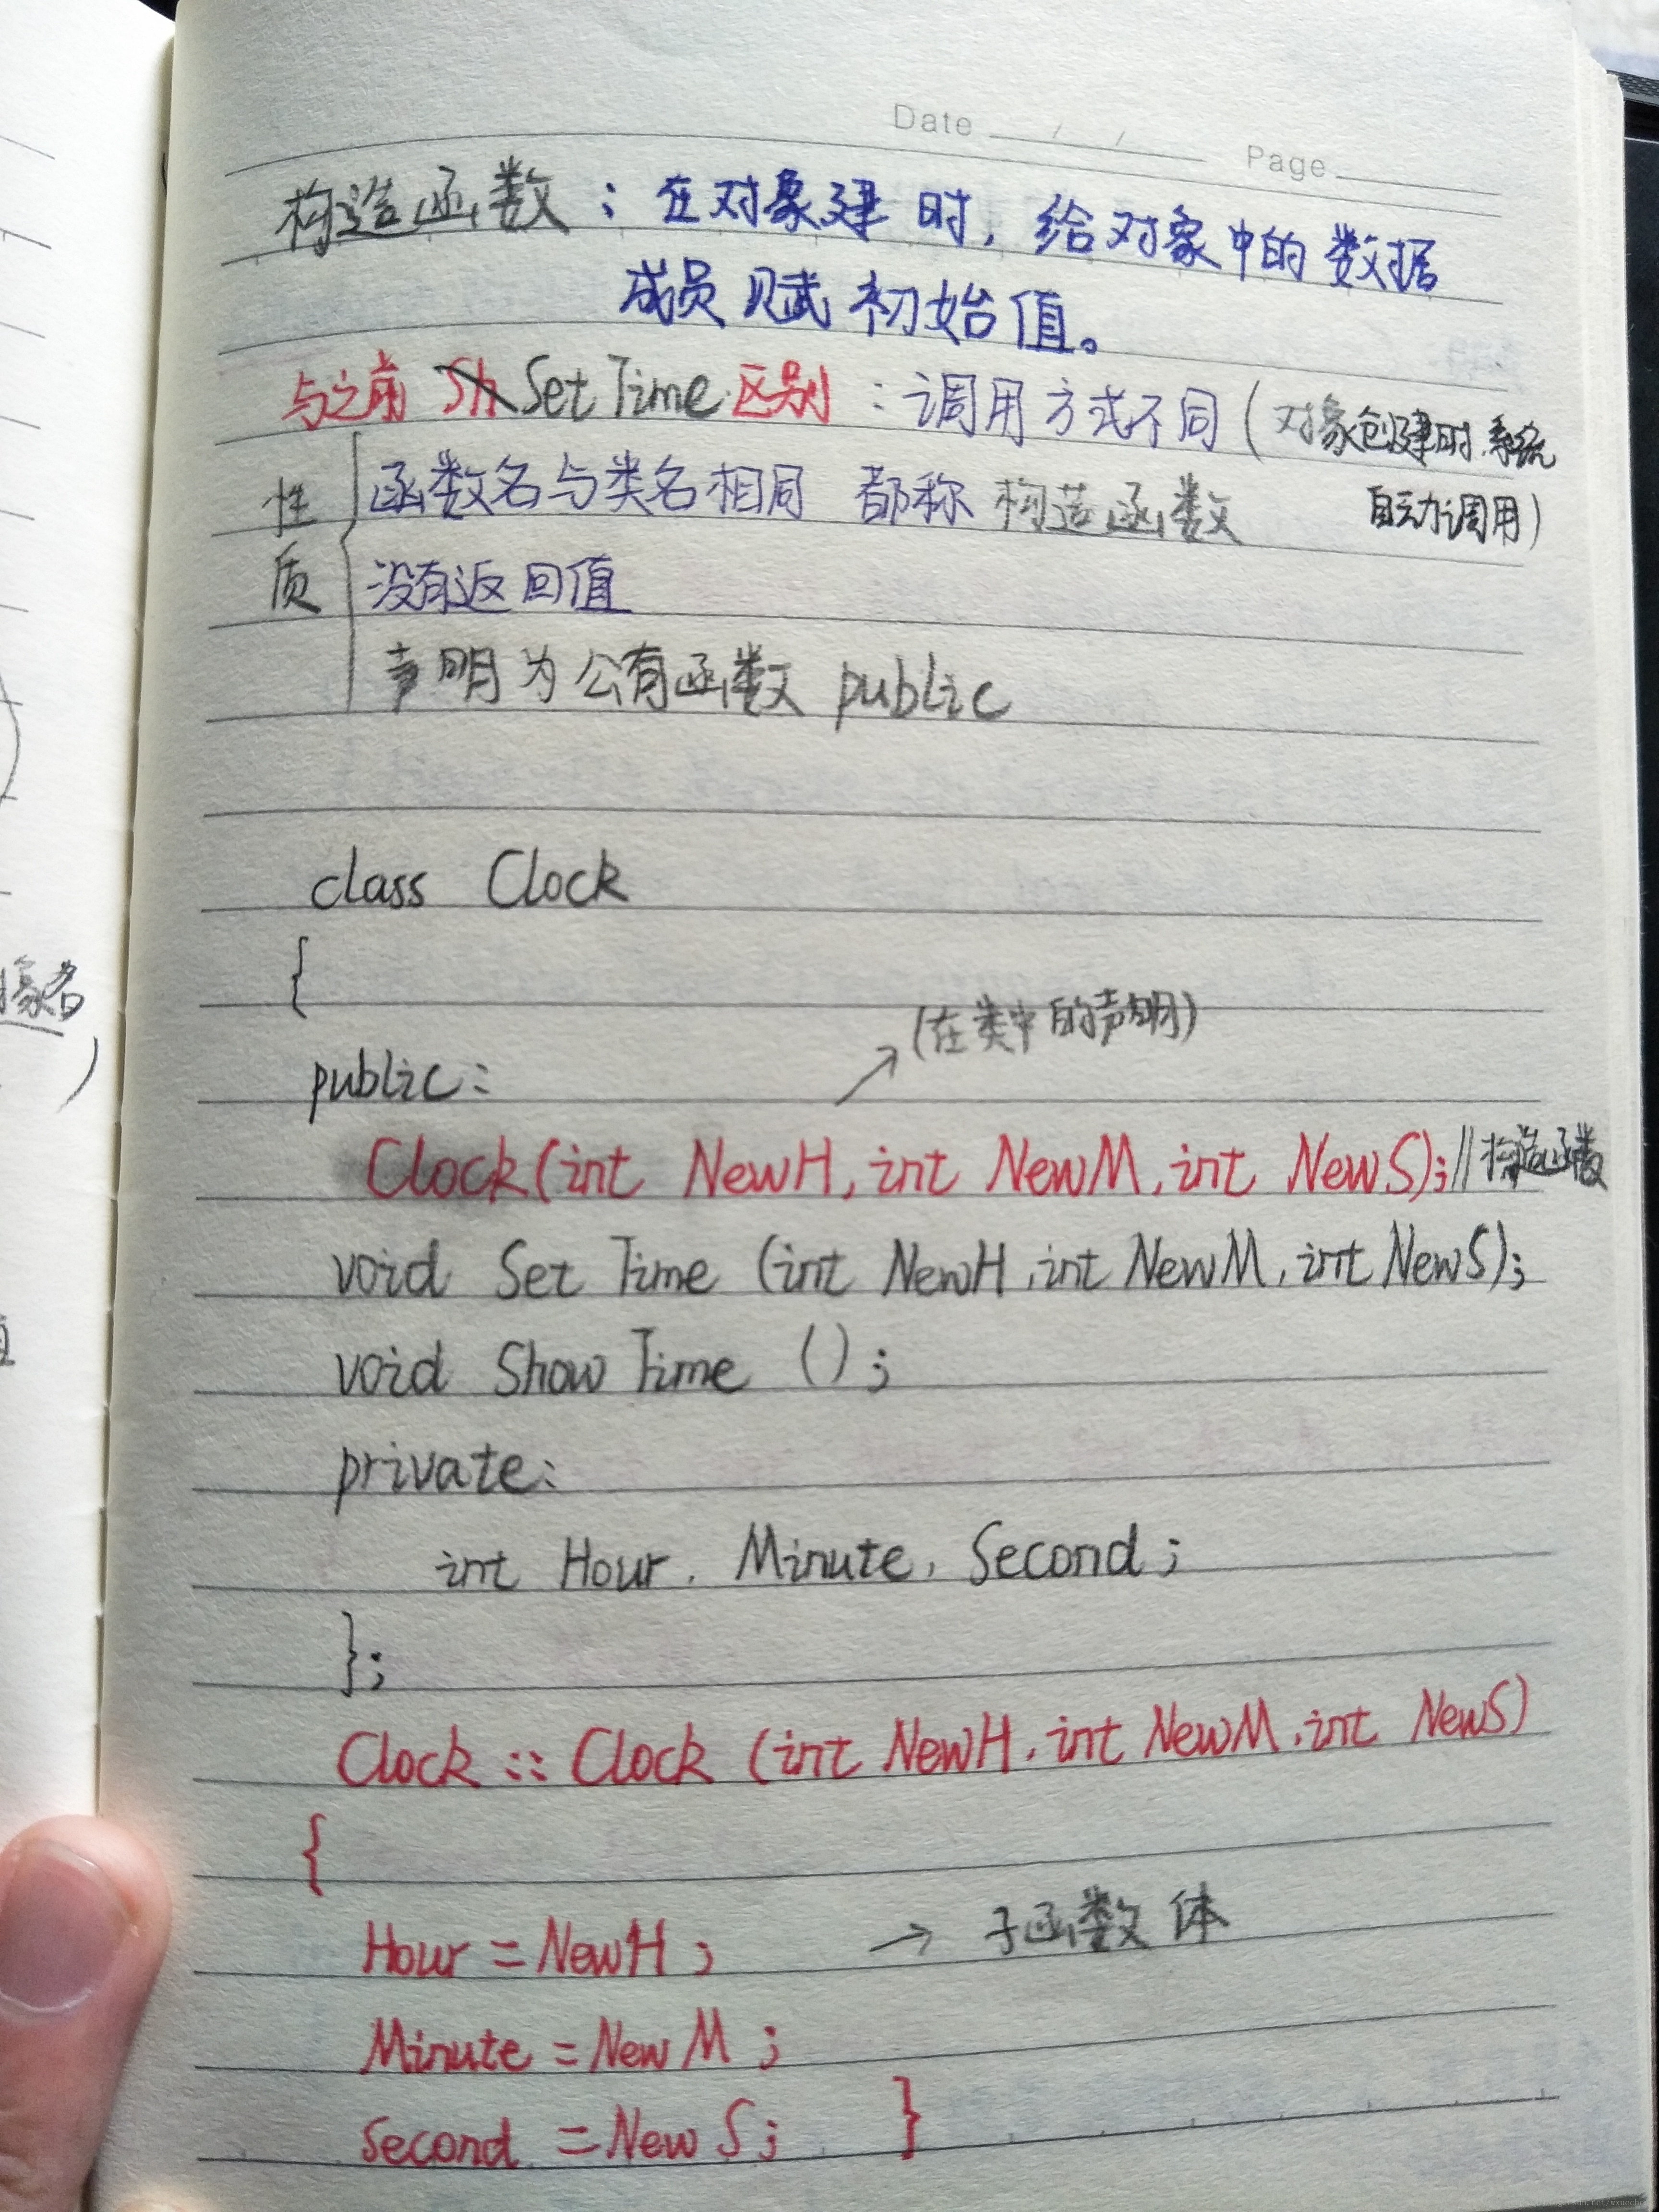 Date / / Page
构造函数：在对象建 时，给对象中的数据
成员赋初始值。
与之前 SetTime 区别：调用方式不同（对象创建时,系统
自动调用）
性质
函数名与类名相同 都称构造函数
没有返回值
声明为公有函数 public
class Clock
{
(在类中的声明)
public:
Clock(int NewH, int NewM, int NewS); //构造函数
void SetTime (int NewH, int NewM, int NewS);
void ShowTime ();
private:
int Hour, Minute, Second;
};
Clock :: Clock (int NewH, int NewM, int NewS)
{
Hour = NewH; → 子函数体
Minute = NewM;
Second = NewS; }
象名
)